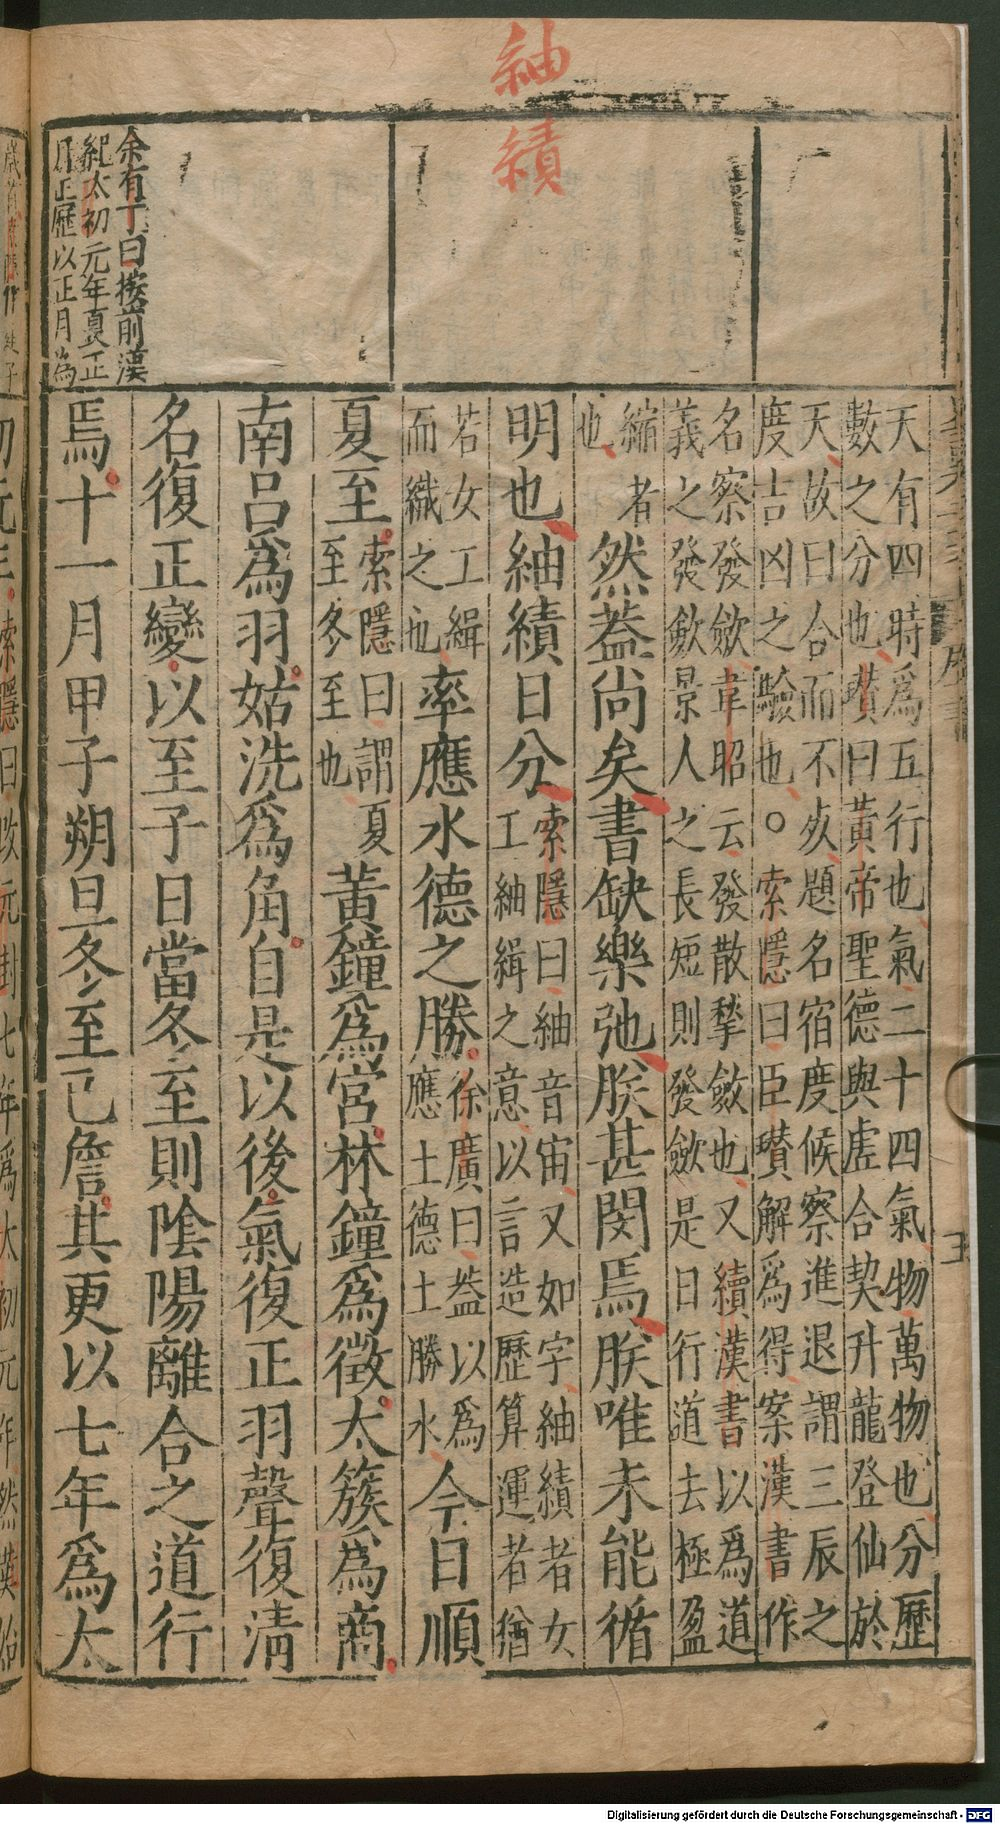 紬
績
余有丁曰按前漢
紀太初元年夏正
月正歷以正月為
天有四時為五行也氣二十四氣物萬物也分歷
數之分也瓚曰黃帝聖德與虛合契升龍登仙於
天故曰合而不死題名宿度候察進退謂三辰之
度吉凶之驗也○索隱曰臣瓚解為得案漢書作
名察發歛韋昭云發散摰歛也又續漢書以為道
義之發歛景人之長短則發歛是日行道去極盈
縮者
也然蓋尚矣書缺樂弛朕甚閔焉朕唯未能循
明也紬績日分索隱曰紬音宙又如字紬績者女
工紬緝之意以言造歷算運者猶
若女工緝
而織之也率應水德之勝徐廣曰蓋以為
應土德土勝水今日順
夏至索隱曰謂夏
至冬至也黃鐘為宮林鐘為徵太簇為商
南呂為羽姑洗為角自是以後氣復正羽聲復清
名復正變以至子日當冬至則陰陽離合之道行
焉十一月甲子朔旦冬至已詹其更以七年為太
初元年索隱曰改元封七年為太初元年然漢始
Digitalisierung gefördert durch die Deutsche Forschungsgemeinschaft - DFG